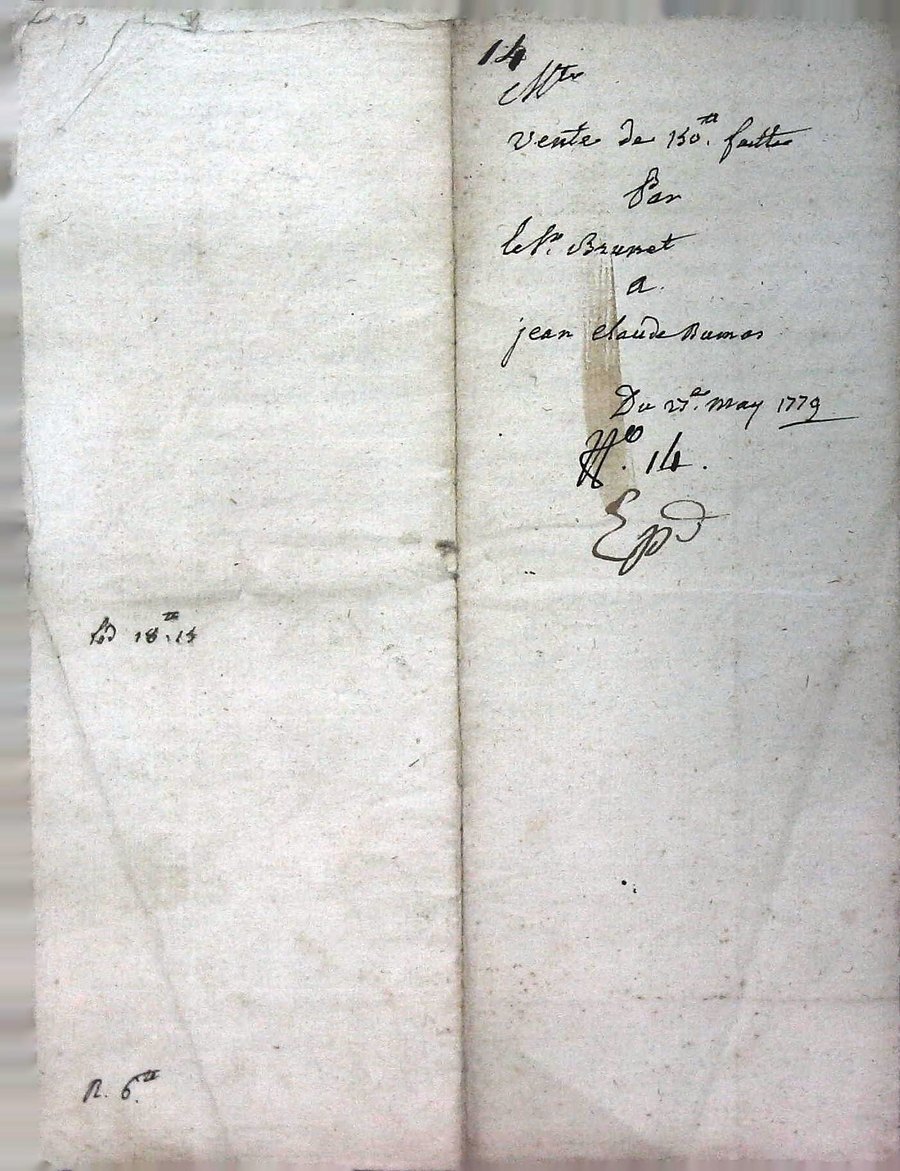 14
Mte
vente de 150tt. faitte
Par
le Sr. Brunet
a.
jean claude Dumas
Du 27e. may 1779
No. 14.
Epd
18tt.14
R. 6tt